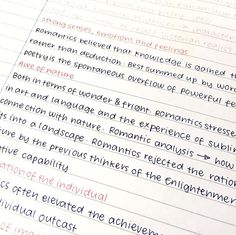 strong senses, emotions and feelings
Romantics believed that knowledge is gained th
rather than deduction. Best summed up by word
poetry is the spontaneous overflow of powerful fee
Awe of nature
Both in terms of wonder & fright. Romantics stresse
in art and language and the experience of sublim
connection with nature. Romantic analysis → how
ts into a landscape. Romantics rejected the ration
ture by the previous thinkers of the enlightenmen
ative capability
ation of the individual
ics often elevated the achieveme
dividual outcast